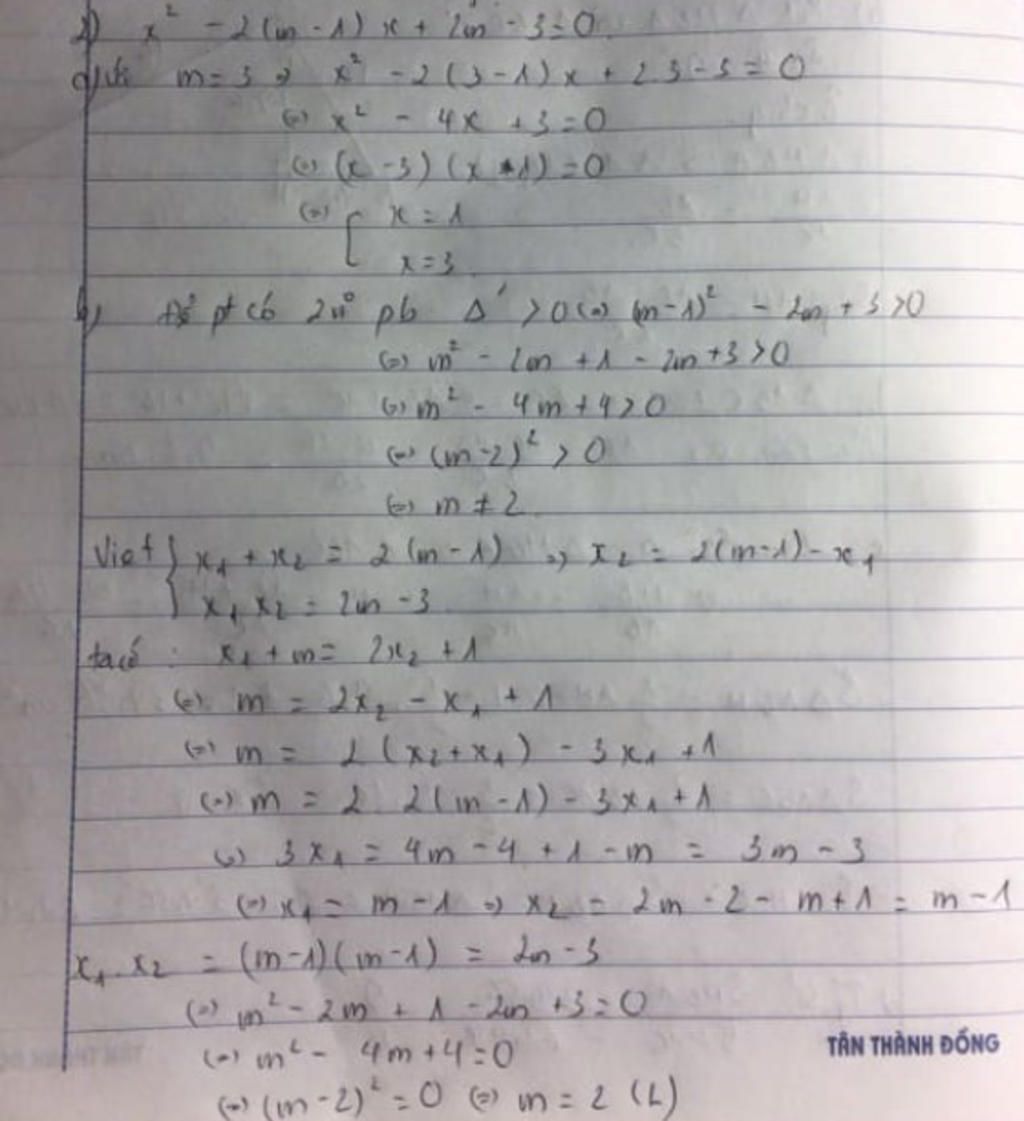 2) x² - 2(m - 1)x + 2m - 3 = 0
a) Với m = 3 => x² - 2(3 - 1)x + 2.3 - 3 = 0
(=) x² - 4x + 3 = 0
(=) (x - 3)(x - 1) = 0
(=) [ x = 1
x = 3
b) Để pt có 2n⁰ pb Δ' > 0 (=) (m - 1)² - 2m + 3 > 0
(=) m² - 2m + 1 - 2m + 3 > 0
(=) m² - 4m + 4 > 0
(=) (m - 2)² > 0
(=) m ≠ 2
Viet { x₁ + x₂ = 2(m - 1) => x₂ = 2(m - 1) - x₁
x₁ x₂ = 2m - 3
ta có : x₁ + m = 2x₂ + 1
(=) m = 2x₂ - x₁ + 1
(=) m = 2(x₂ + x₁) - 3x₁ + 1
(=) m = 2 . 2(m - 1) - 3x₁ + 1
(=) 3x₁ = 4m - 4 + 1 - m = 3m - 3
(=) x₁ = m - 1 => x₂ = 2m - 2 - m + 1 = m - 1
x₁ . x₂ = (m - 1)(m - 1) = 2m - 3
(=) m² - 2m + 1 - 2m + 3 = 0
(=) m² - 4m + 4 = 0
TÂN THÀNH ĐỒNG
(=) (m - 2)² = 0 (=) m = 2 (L)